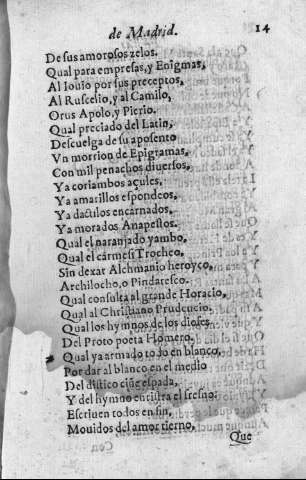 de Madrid. 14
De sus amorosos zelos.
Qual para empresas, y Enigmas,
Al Iouio por sus preceptos,
Al Ruscelio, y al Camilo,
Orus Apolo, y Pierio.
Qual preciado del Latin,
Descuelga de su aposento
Vn morrion de Epigramas,
Con mil penachos diuersos,
Ya coriambos açules,
Ya amarillos espondeos,
Ya dactulos encarnados,
Ya morados Anapestos.
Qual el naranjado yambo,
Qual el carmesi Trocheo,
Sin dexar Alchmanio heroyco,
Archilocho, o Pindaresco.
Qual consulta al grande Horacio,
Qual al Christiano Prudencio,
Qual los hymnos de los dioses
Del Proto poeta Homero.
Qual ya armado todo en blanco,
Por dar al blanco en el medio
Del distico ciñe espada,
Y del hymno enristra el fresno:
Escriuen todos en fin,
Mouidos del amor tierno,
Que